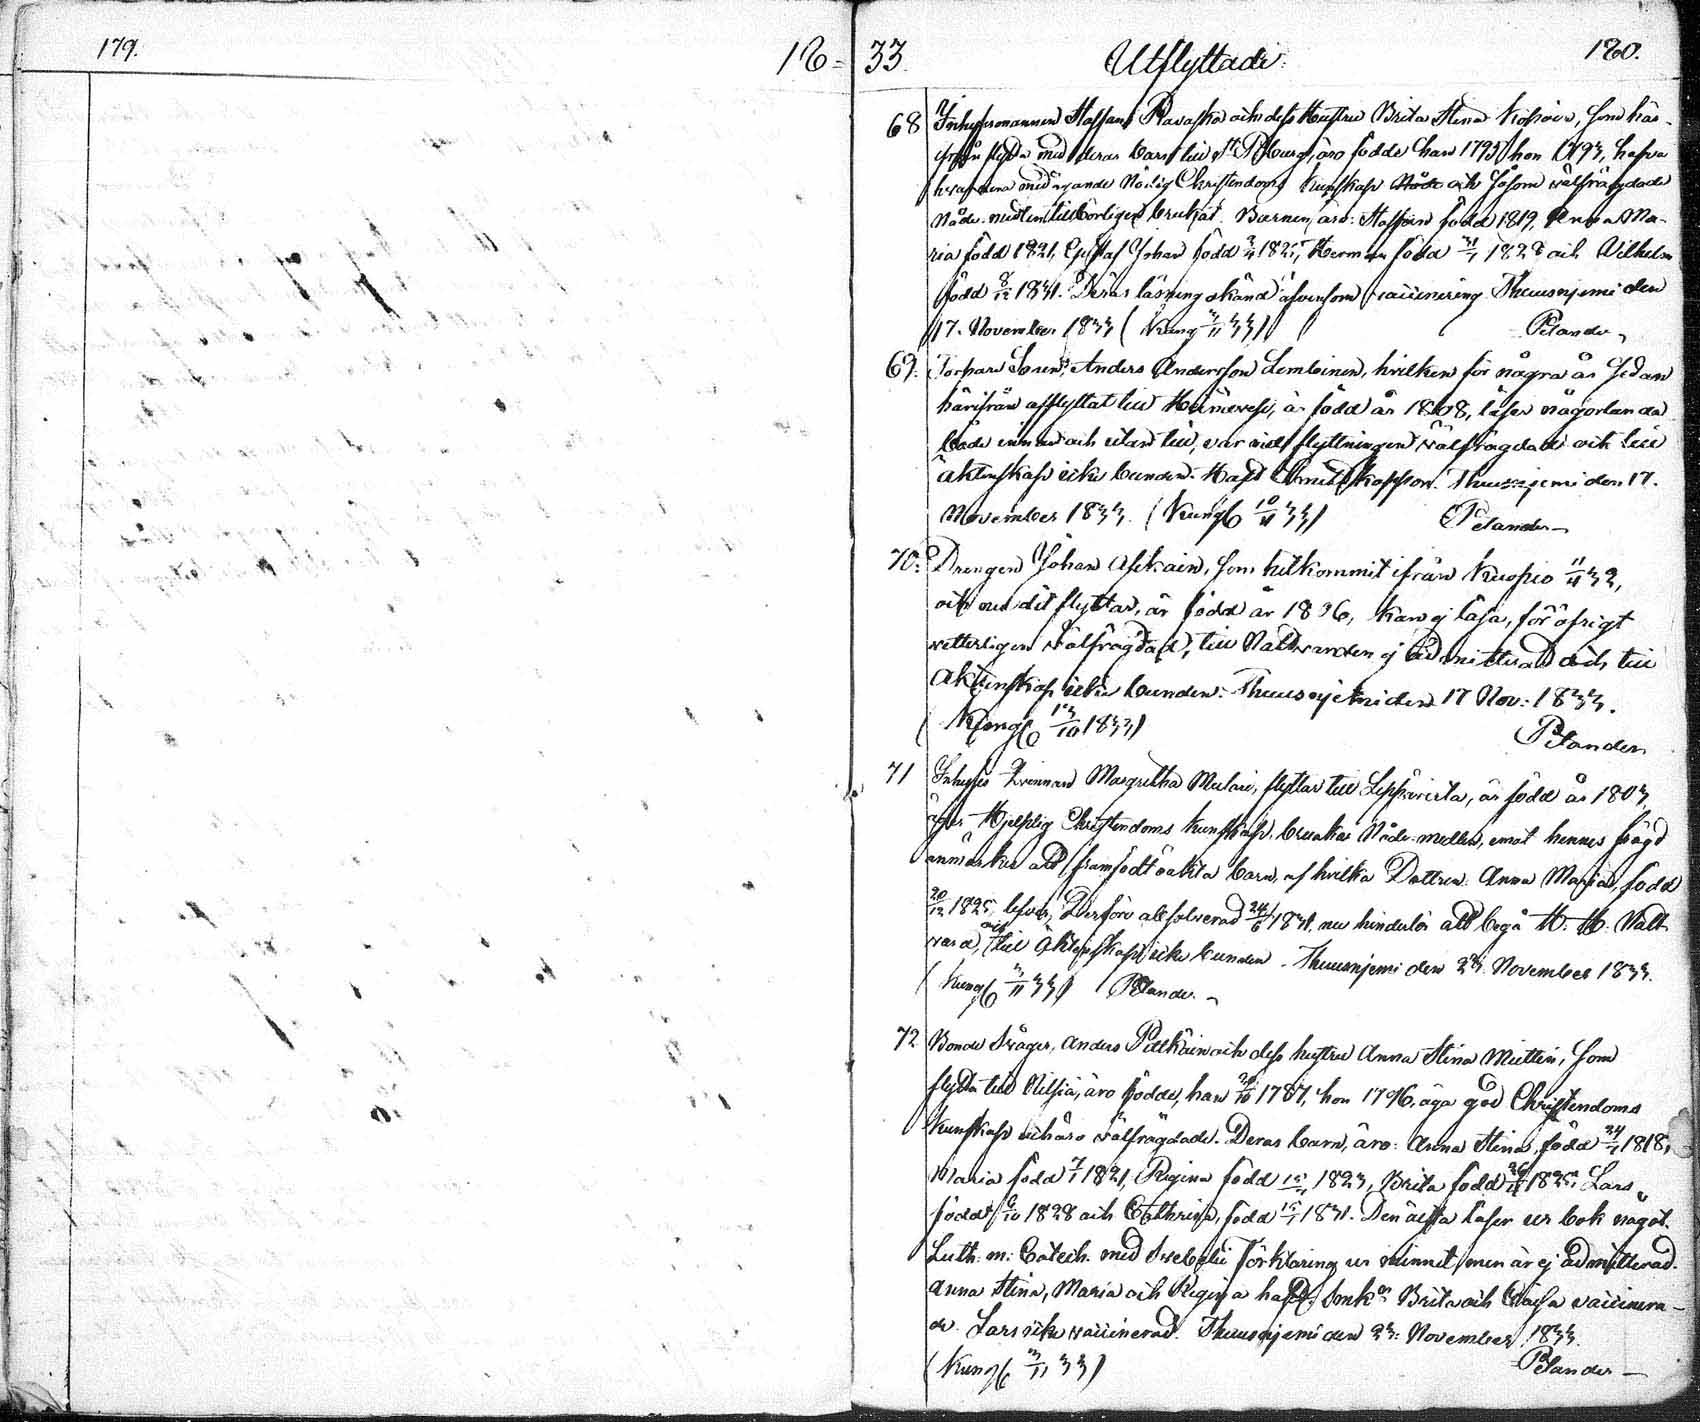 179.
18 = 33.
Utflyttade.
180.
68 Inhysesmannen Staffan och dess Hustru Brita Stina, som här-
ifrån flytta med deras barn till St. Pburg, äro födde han 1795 hon 1793, hafva
Christendoms kunskap och såsom välfrägdade
Nåde-medlen tillbörligen brukat. Barnen äro: Staffan född 1819, Anna Ma-
ria född 1821, Gustaf Johan född 1825, Herman född 1828 och Vilhelm
född 8/12 1831. Deras läsning okänd äfvensom vaccinering. Thuusnjemi den
17. November 1833 (Kung 3/11 33) Pelander
69. Torpare Sonen, Anders Andersson Lemleinen, hvilken för några år sedan
härifrån afflyttat till, är född år 1808, läser någorlunda
både innan och utan till, var vid flyttningen välfrägdad och till
äktenskap icke bunden. Haft Smittkoppor. Thuusnjemi den 17.
November 1833. (Kung 10/11 33) Pelander
70. Drengen Johan Asikain, som hitkommit ifrån Kuopio 11/11 32,
och nu dit flyttar, är född år 1806, kan ej läsa, för öfrigt
vetterligen välfrägdad, till Nattvarden ej admitterad och till
äktenskap icke bunden. Thuusnjemi den 17 Nov: 1833.
(Kung 13/10 1833) Pelander
71 Inhyses Kvinnan Margretha Mulari, flyttar till Leppävirta, är född år 1803,
äger Hjelplig Christendoms kunskap, brukar Nåde-medlen, emot hennes frägd
anmärkes att framfödt oäkta barn, af hvilka Dottren Anna Maria, född
20/12 1825 lefver, Derföre absolverad 24/6 1831, nu hinderlös att begå H. H. Natt-
vard, och till äktenskap icke bunden. Thuusnjemi den 23. November 1833.
(Kung 3/11 33) Pelander
72 Bonde Svåger, Anders Pitkäin och dess hustru Anna Stina Miettin, som
flytta till Nilsiä, äro födde, han 20/10 1787, hon 1796, äga god Christendoms
kunskap och äro välfrägdade. Deras barn, äro: Anna Stina, född 24/7 1818,
Maria född 7/7 1821, Regina född 1823, Brita född 26/11 1825, Lars
född 6/10 1828 och Cathrina, född 15/7 1831. Den äldsta läser ur bok något
Luth. m: Catech. med Svebelii Förklaring ur minnet, men är ej admitterad.
Anna Stina, Maria och Regina haft Smkr Brita och Caisa vaccinera-
de. Lars icke vaccinerad. Thuusnjemi den 23: November 1833.
(Kung 3/11 33) Pelander